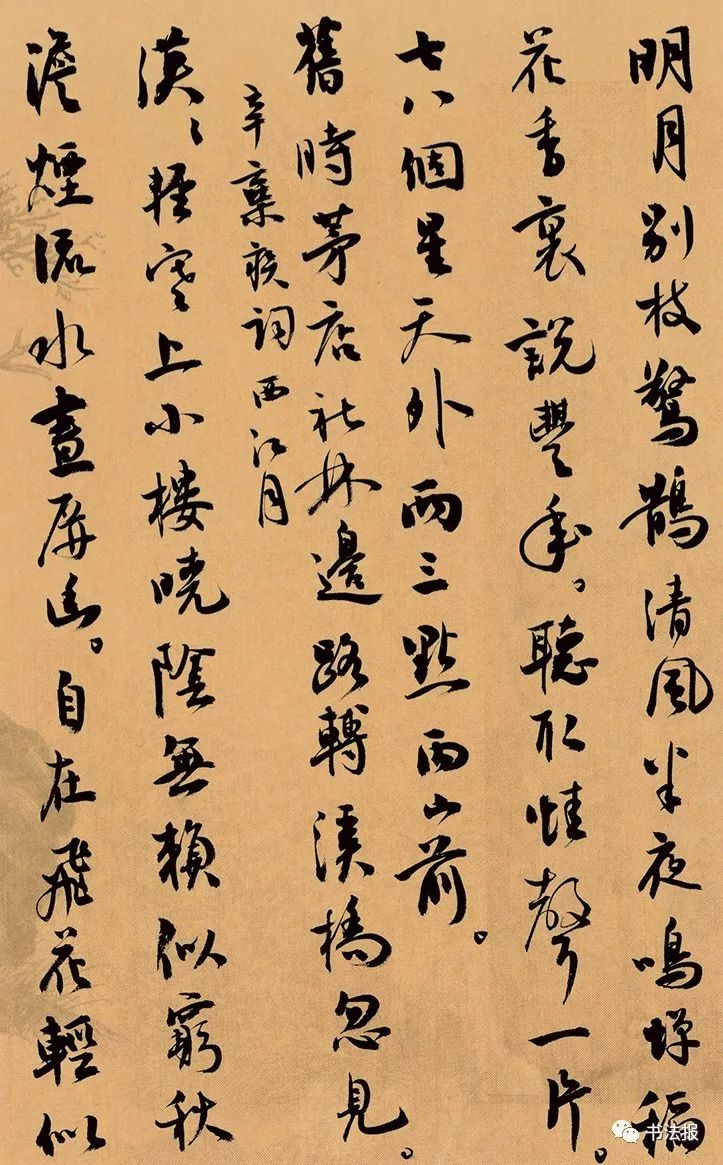 明月別枝驚鵲清風半夜鳴蟬稻
花香裏說豐年。聽取蛙聲一片。
七八個星天外兩三點雨山前。
舊時茅店社林邊路轉溪橋忽見。
辛棄疾詞西江月
漠〻輕寒上小樓曉陰無賴似窮秋
澹煙流水畫屏幽。自在飛花輕似
书法报